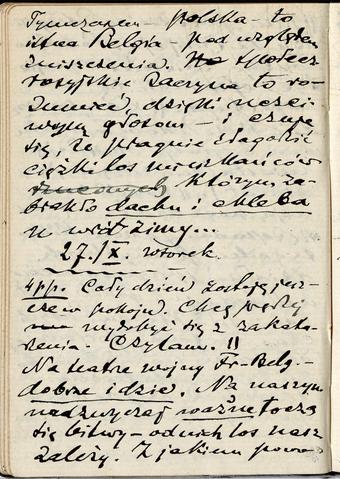 Tymczasem - polska - to
istna Belgia - pod względem
zniszczenia. No społecz
rosyjskie zaczyna to ro-
zumieć, dzięki
głosom - i czuje
się, że pragnie złagodzić
ciężki los mieszkańców
którym za-
brakło dachu i chleba
u wrót zimy...
27./X. wtorek.
4 pp. Cały dzień zostaję jesz-
cze w pokoju. Chcę prędzej
wydobyć się z zakata-
rzenia. Czytam. !!
Na teatrze wojny Fr-Belg. -
dobrze idzie. Na naszym
nadzwyczaj ważne toczą
się bitwy - od nich los nasz
zależy. Z jakiem